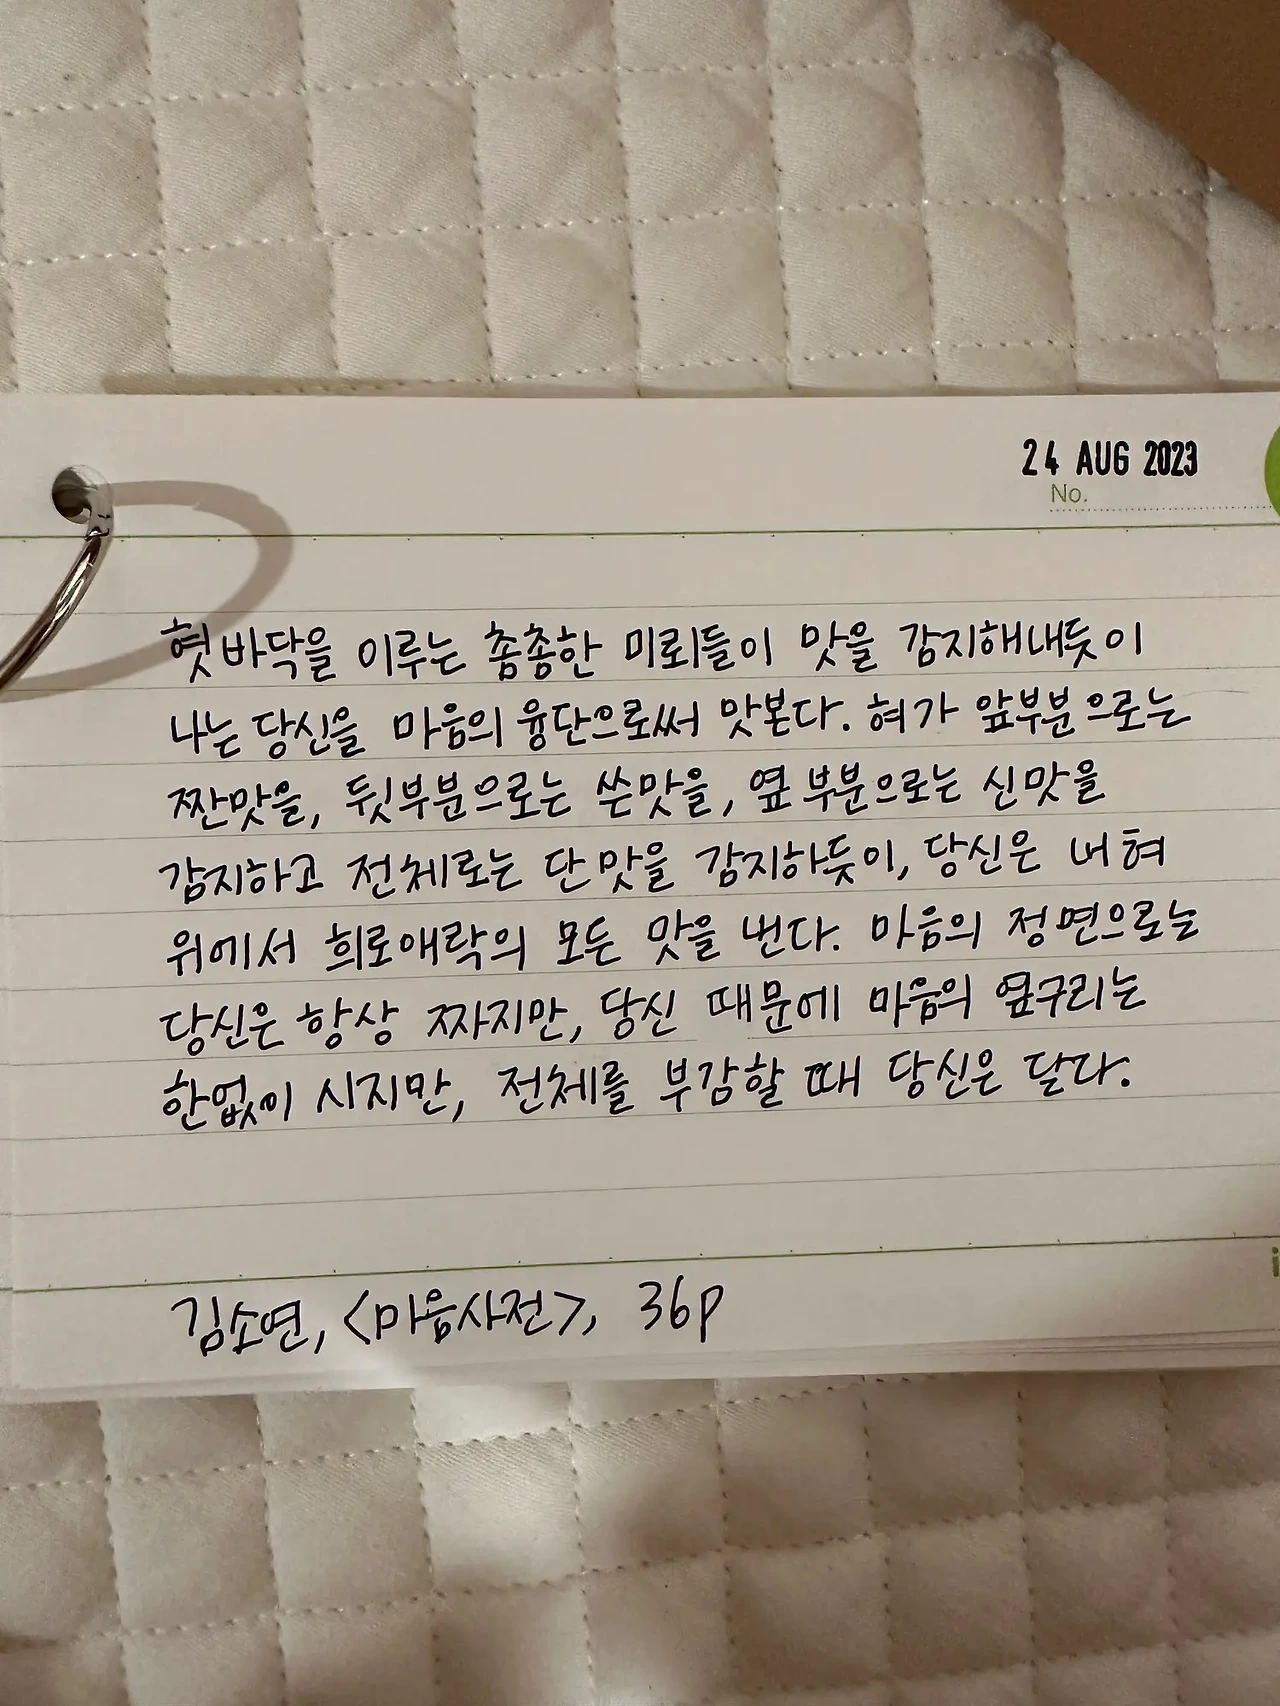 24 AUG 2023
No.
혓바닥을 이루는 촘촘한 미뢰들이 맛을 감지해내듯이
나는 당신을 마음의 융단으로써 맛본다. 혀가 앞부분으로는
짠맛을, 뒷부분으로는 쓴맛을, 옆 부분으로는 신맛을
감지하고 전체로는 단맛을 감지하듯이, 당신은 내 혀
위에서 희로애락의 모든 맛을 낸다. 마음의 정면으로는
당신은 항상 짜지만, 당신 때문에 마음의 옆구리는
한없이 시지만, 전체를 부감할 때 당신은 달다.
김소연, <마음사전>, 36p